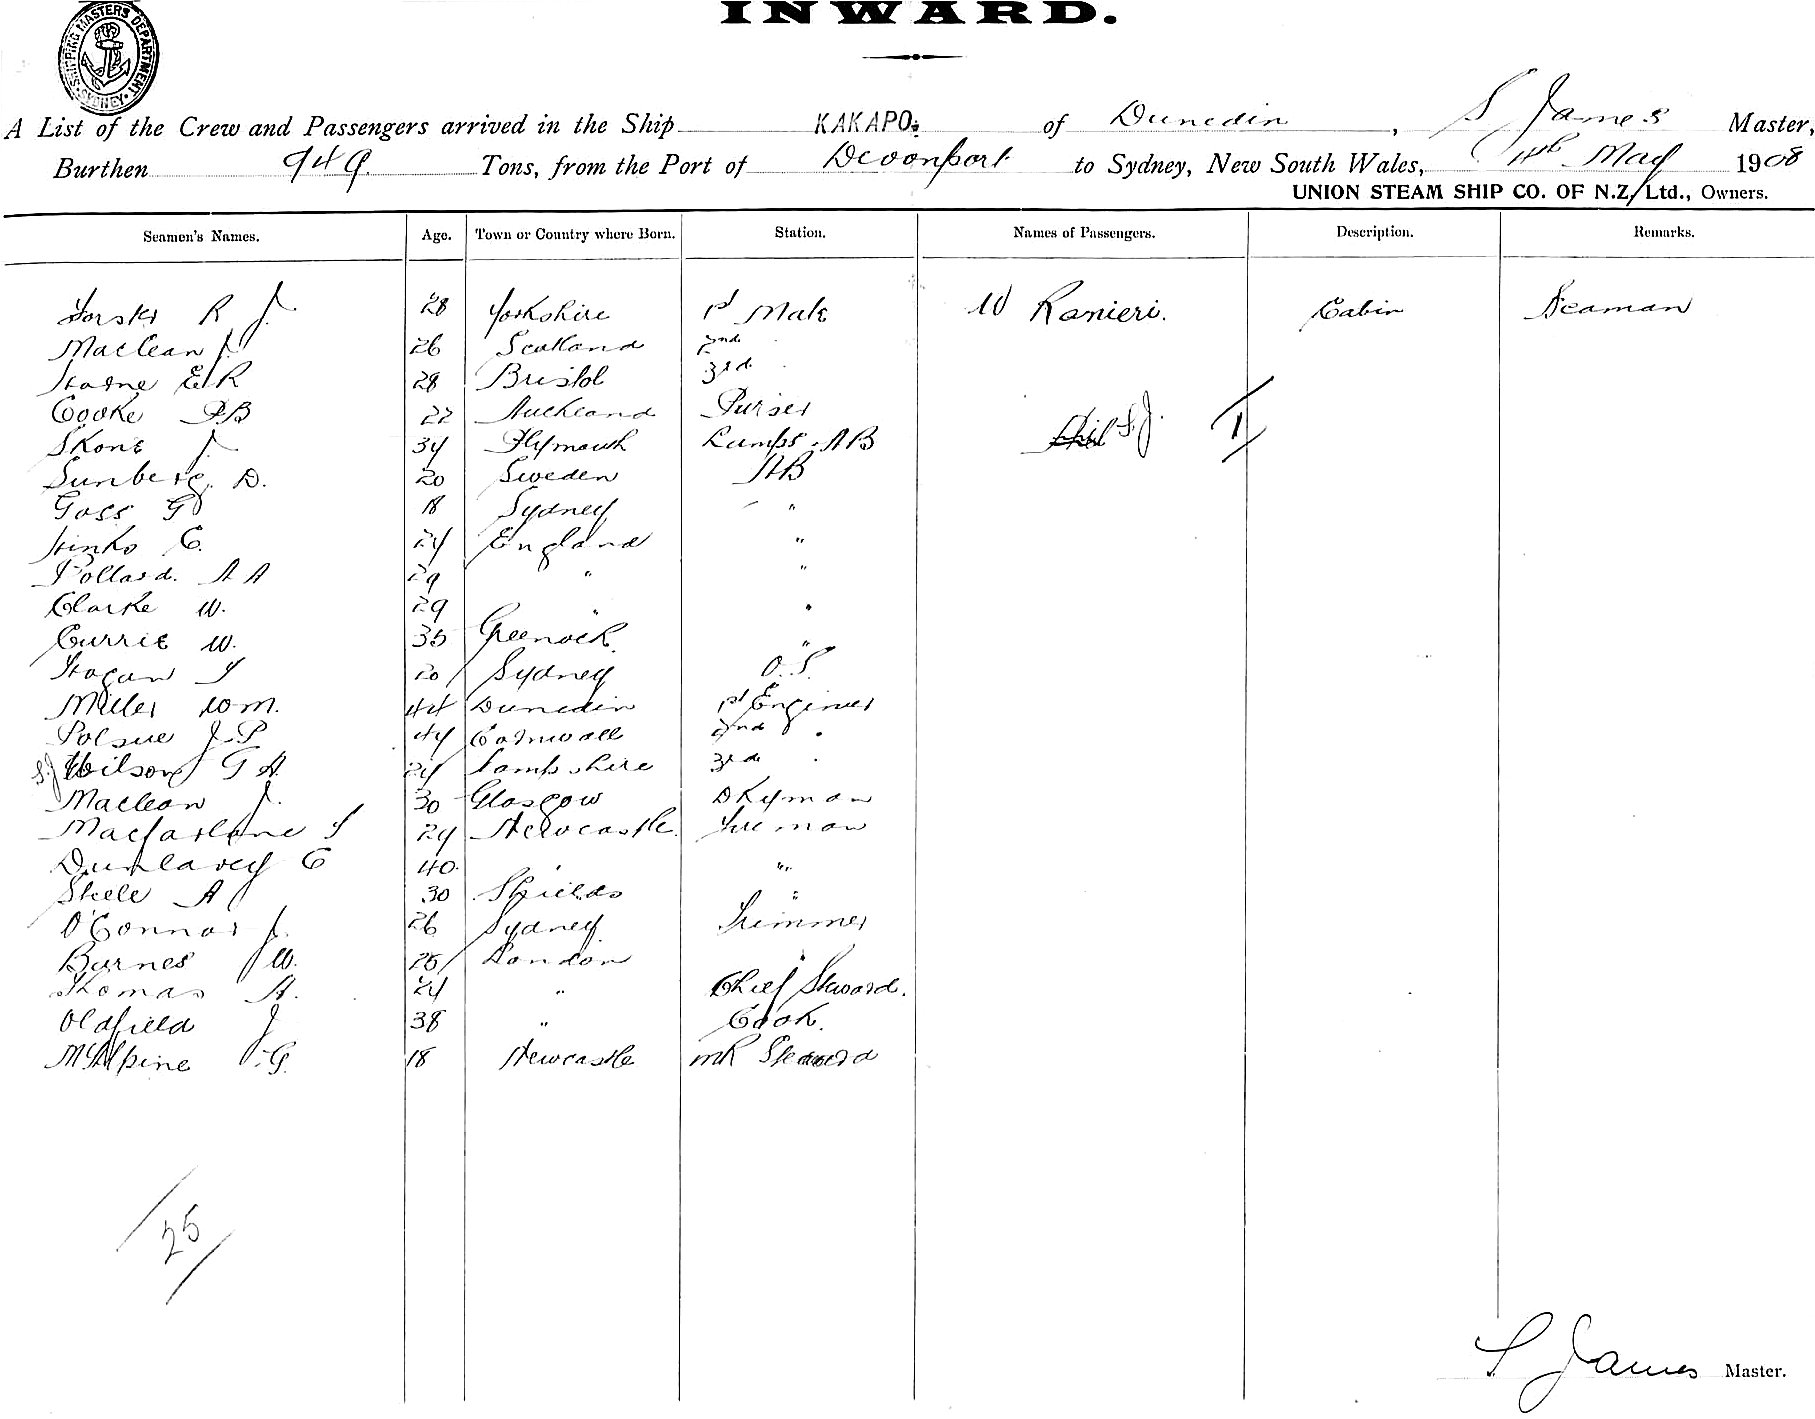 INWARD.
SHIPPING MASTERS DEPARTMENT SYDNEY
A List of the Crew and Passengers arrived in the Ship KAKAPO. of Dunedin, S James Master,
Burthen 949 Tons, from the Port of Devonport to Sydney, New South Wales, 4th May 1908
UNION STEAM SHIP CO. OF N.Z. Ltd., Owners.
Seamen's Names. Age. Town or Country where Born. Station. Names of Passengers. Description. Remarks.
Forster R J. 28 Yorkshire 1st Mate W Ranieri. Cabin Seaman
Maclean J. 26 Scotland 2nd
E R 28 Bristol 3rd
Cooke B 22 Auckland Purser
Skone J. 34 Plymouth Lamps. AB S.J. 1
Sunberg D. 20 Sweden AB
Goss G 18 Sydney " "
Hinks C. 24 England "
Pollard. A A 29 " "
Clarke W. 29 " "
Currie W. 35 Greenock. "
Hogan S 20 Sydney O.S.
Miller Wm. 44 Dunedin 1st Engineer
Polsue J P 44 Cornwall 2nd "
Wilson G A. 24 3rd "
Maclean J. 30 Glasgow Dkyman
Macfarlane S 24 Newcastle Fireman
Dunlavey C 40. " "
Steele A 30 Shields "
O'Connor J. 26 Sydney Trimmer
Barnes W. 25 London "
Thomas A. 24 " Chief Steward.
Oldfield J 38 " Cook.
McAlpine G. 18 Newcastle mR Steward
25
S James Master.